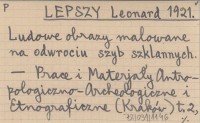 P
LEPSZY Leonard 1921.
Ludowe obrazy malowane
na odwrociu szyb szklannych.
— Prace i Materjały Antro-
pologiczno-Archeologiczne i
Etnograficzne (Kraków) t. 2,